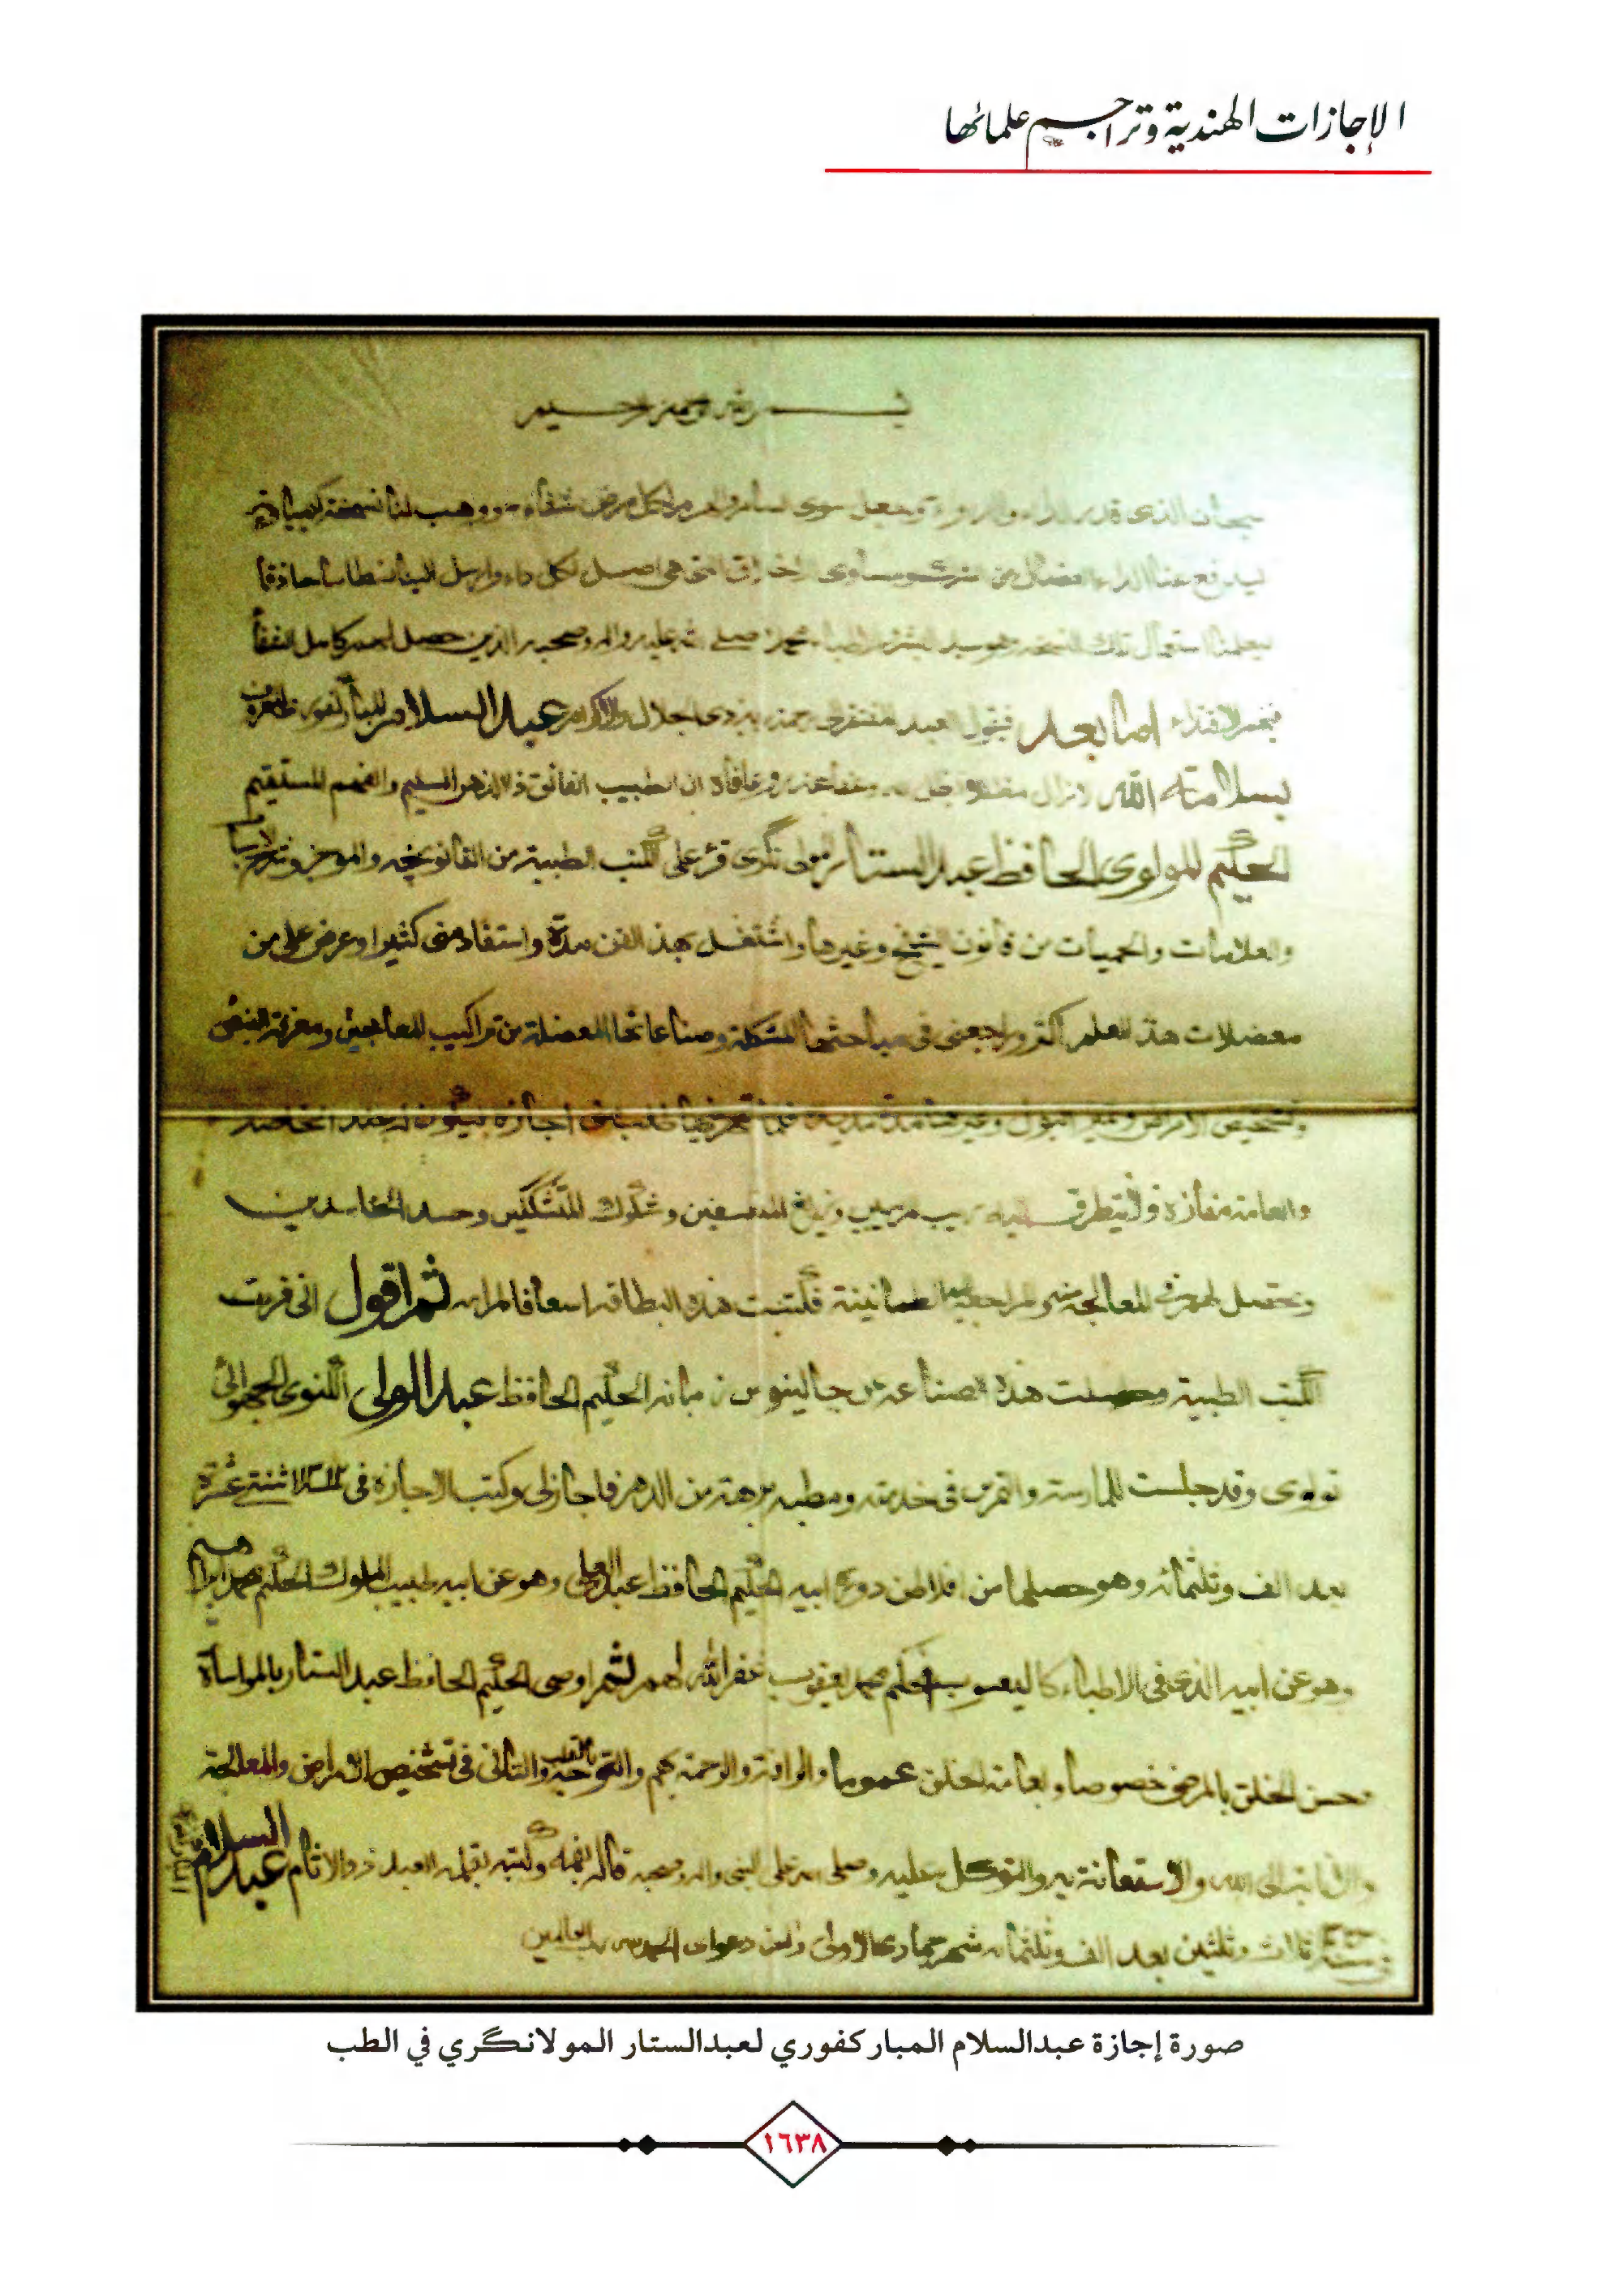 الإجازات الهندية وتراجم علمائها
بسم الله الرحمن الرحيم
سبحان الذي قدر الداء والدواء وجعل سوى السام والهرم لكل مرض شفاء ووهب لنا نسخة كيمياء
ليدفع عنا الداء العضال من الشرك ومساوي الاخلاق التي هي اصل لكل داء وارسل الينا نطاسيا حاذقا
استعمال تلك النسخة هو سيد البشر محمد صلى الله عليه واله وصحبه الذين حصل لهم كامل الشفا
اما بعد فيقول العبد المفتقر الى رحمة ربه ذي الجلال والاكرام عبد السلام المباركفوري
بسلامته الله لا زال عفا عنه وعافاه ان الطبيب الفائق ذا الذهن السليم والفهم المستقيم
الحكيم المولوي الحافظ عبد الستار المولى نگري قرء على الكتب الطبية من القانونچه والموجز وشرح الاسباب
والعلامات والحميات من قانون الشيخ وغيرها واشتغل بهذا الفن مدة واستفاد مني كثيرا وعرض علي من
معضلات هذا العلم اكثر وراجعني في مباحثها المشكلة وصناعاتها المعضلة من تراكيب المعاجين ومعرفة النبض
وتشخيص الامراض البول وغيرها مدة مديدة فلما فطلب مني اجازة ليكون له عند الخاصة
والعامة مفازة ولا يتطرق اليه ريب مريب وزيغ وشكوك المتشككين وحسد الحاسدين
وتحصل لهم في المعالجة طمانينة فكتبت هذه البطاقة اسعافا لمرامه ثم اقول اني قريت
الكتب الطبية وحصلت هذه الصناعة عن جالينوس زمانه الحكيم الحافظ عبد الولي اللكنوي الجهوائي
ٹولوي وقد جلست للممارسة والتمرين في خدمته ومطبه برهة من الدهر فاجازلي وكتب الاجازة في سنة اثنتي عشرة
بعد الف وثلثمائه وهو حصلها من ابيه الحكيم الحافظ عبد العلي وهو عن ابيه طبيب الملوك الحكيم محمد ابراهيم
وهو عن ابيه الذي في الاطباء كاليعسوب الحكيم محمد يعقوب غفر الله لهم ثم اوصى الحكيم الحافظ عبد الستار بالمواساة
وحسن الخلق بالمرضى خصوصا وبعامة الخلق عموما والرافة والرحمة بهم والتوجه بالقلب والتاني في تشخيص الامراض والمعالجة
والانابة الى الله والاستعانة به والتوكل عليه وصلى الله على النبي واله وصحبه قاله بفمه وكتبه بقلمه العبد ذو الاثام عبد السلام المباركفوري
في سنة ثلاث وثلثين بعد الف وثلثمائه شهر جمادى الاولى واخر دعوانا الحمد لله رب العالمين
صورة إجازة عبدالسلام المباركفوري لعبدالستار المولانگري في الطب
١٦٣٨